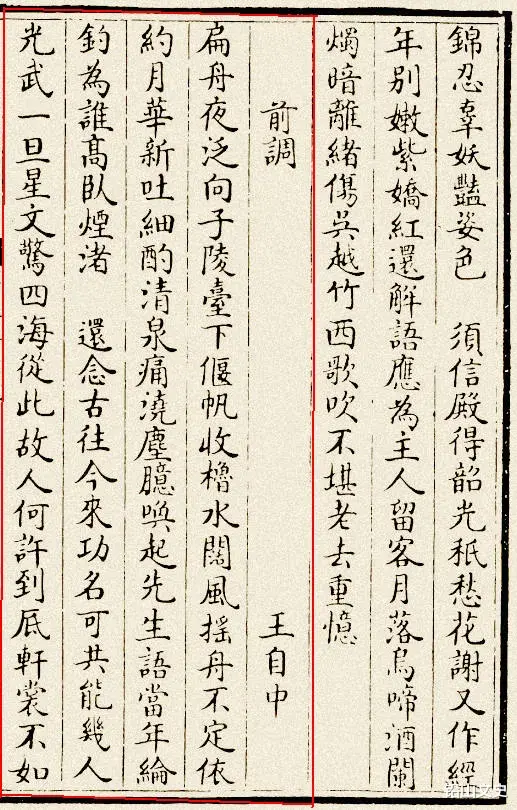 錦忍辜妖豔姿色　須信殿得韶光秖愁花謝又作經
年别嫩紫嬌紅還解語應為主人留客月落烏啼酒闌
燭暗離緒傷吳越竹西歌吹不堪老去重憶
前調　王自中
扁舟夜泛向子陵臺下偃帆收櫓水闊風摇舟不定依
約月華新吐細酌清泉痛澆塵臆喚起先生語當年綸
釣為誰髙臥煙渚　還念古往今來功名可共能幾人
光武一旦星文驚四海從此故人何許到底軒裳不如